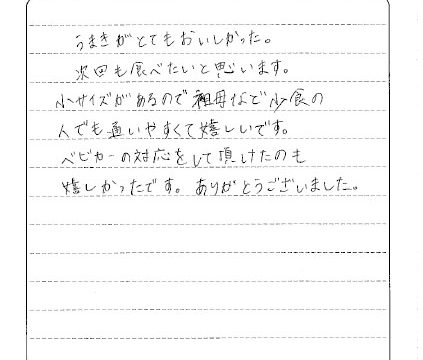 うまきがとてもおいしかった。
次回も食べたいと思います。
小サイズがあるので祖母など少食の
人でも通いやすくて嬉しいです。
ベビカーの対応をして頂けたのも
嬉しかったです。ありがとうございました。